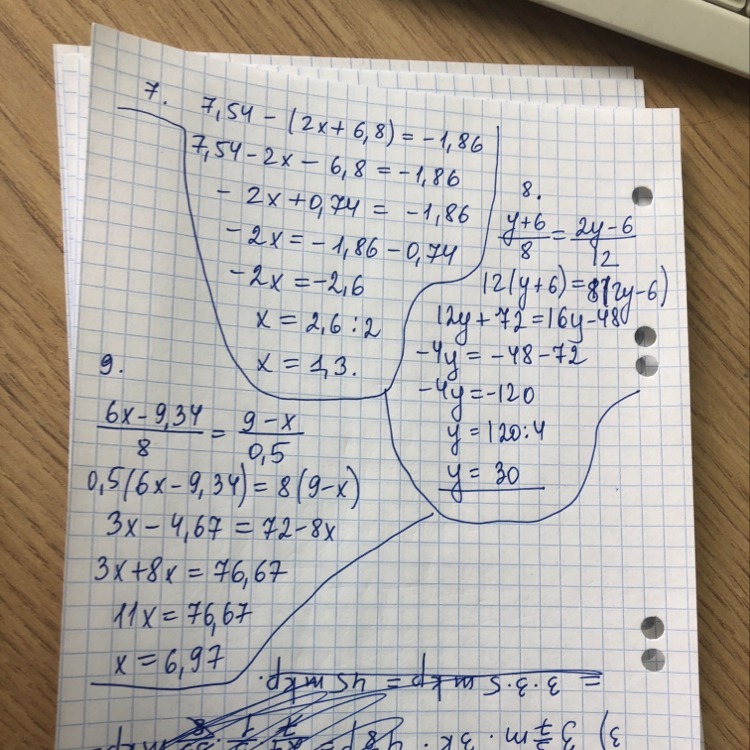 7.
7,54 - (2x + 6,8) = -1,86
7,54 - 2x - 6,8 = -1,86
- 2x + 0,74 = -1,86
- 2x = -1,86 - 0,74
- 2x = -2,6
x = 2,6 : 2
x = 1,3.
8.
(y+6)/8 = (2y-6)/12
12(y+6) = 8(2y-6)
12y + 72 = 16y - 48
-4y = -48 - 72
-4y = -120
y = 120:4
y = 30
9.
(6x - 9,34)/8 = (9 - x)/0,5
0,5(6x - 9,34) = 8(9-x)
3x - 4,67 = 72 - 8x
3x + 8x = 76,67
11x = 76,67
x = 6,97
= 3·3·5 m kp = 45 m kp.